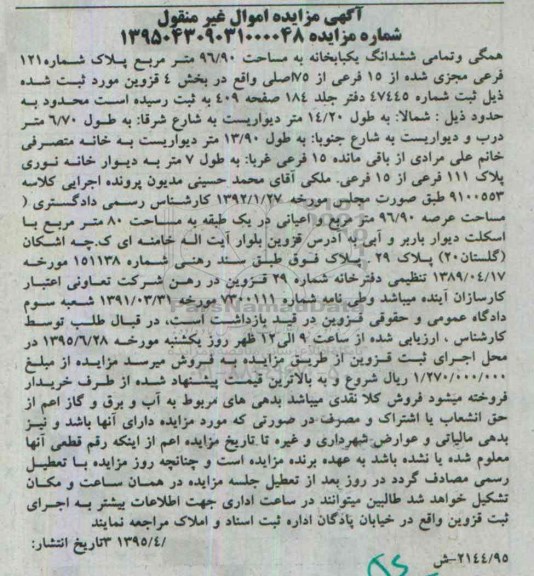 آگهی مزایده اموال غیر منقول
شماره مزایده ۱۳۹۵۰۴۳۰۹۰۳۱۰۰۰۰۴۸
همگی وتمامی ششدانگ یکبابخانه به مساحت ۹۶/۹۰ متر مربع پلاک شماره۱۲۱
فرعی مجزی شده از ۱۵ فرعی از ۷۵اصلی واقع در بخش ۴ قزوین مورد ثبت شده
ذیل ثبت شماره ۴۷۴۴۵ دفتر جلد ۱۸۴ صفحه ۴۰۹ به ثبت رسیده است محدود به
حدود ذیل : شمالا: به طول ۱۴/۲۰ متر دیواریست به شارع شرقا: به طول ۶/۷۰ متر
درب و دیواریست به شارع جنوبا: به طول ۱۳/۹۰ متر دیواریست به خانه متصرفی
خانم علی مرادی از باقی مانده ۱۵ فرعی غربا: به طول ۷ متر به دیوار خانه نوری
پلاک ۱۱۱ فرعی از ۱۵ فرعی. ملکی آقای محمد حسینی مدیون پرونده اجرایی کلاسه
۹۱۰۰۵۵۳ طبق صورت مجلس مورخه ۱۳۹۲/۱/۲۷ کارشناس رسمی دادگستری (
مساحت عرصه ۹۶/۹۰ متر مربع و اعیانی در یک طبقه به مساحت ۸۰ متر مربع با
اسکلت دیوار باربر و آبی به آدرس قزوین بلوار آیت اله خامنه ای ک.چه اشکان
(گلستان۲۰) پلاک ۲۹ . پلاک فوق طبق سند رهنی شماره ۱۵۱۱۳۸ مورخه
۱۳۸۹/۰۴/۱۷ تنظیمی دفترخانه شماره ۲۹ قزوین در رهن شرکت تعاونی اعتبار
کارسازان آینده میباشد وطی نامه شماره ۷۳۰۰۱۱۱ مورخه ۱۳۹۱/۰۳/۳۱ شعبه سوم
دادگاه عمومی و حقوقی قزوین در قید بازداشت است، در قبال طلب توسط
کارشناس ، ارزیابی شده از ساعت ۹ الی ۱۲ ظهر روز یکشنبه مورخه ۱۳۹۵/۶/۲۸ در
محل اجرای ثبت قزوین از طریق مزایده به فروش میرسد مزایده از مبلغ
۱/۲۷۰/۰۰۰/۰۰۰ ریال شروع و به بالاترین قیمت پیشنهاد شده از طرف خریدار
فروخته میشود فروش کلا نقدی میباشد بدهی های مربوط به آب و برق و گاز اعم از
حق انشعاب یا اشتراک و مصرف در صورتی که مورد مزایده دارای آنها باشد و نیز
بدهی مالیاتی و عوارض شهرداری و غیره تا تاریخ مزایده اعم از اینکه رقم قطعی آنها
معلوم شده یا نشده باشد به عهده برنده مزایده است و چنانچه روز مزایده با تعطیل
رسمی مصادف گردد در روز بعد از تعطیل جلسه مزایده در همان ساعت و مکان
تشکیل خواهد شد طالبین میتوانند در ساعت اداری جهت اطلاعات بیشتر به اجرای
ثبت قزوین واقع در خیابان پادگان اداره ثبت اسناد و املاک مراجعه نمایند
/۱۳۹۵/۴ ۳تاریخ انتشار:
۲۱۴۴/۹۵-ش